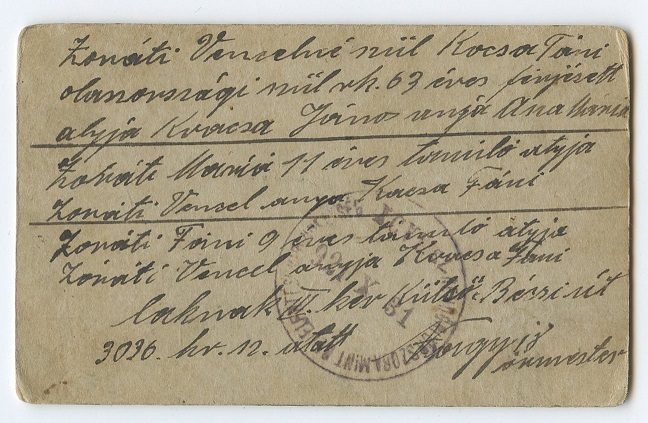 Zonáti Vencelné szül Kocsa Fáni
olaszországi szül rk. 63 éves férjezett
atyja Kovacsa János anyja Ana Mária
Zonáti Mariá 11 éves tanuló atyja
Zonáti Vencel anya Kocsa Fáni
Zonáti Fáni 9 éves tanuló atyja
Zonáti Vencel anyja Kovacsa Fáni
laknak III. ker Külső Bécsi út
3036. hr. sz. alatt
őrmester